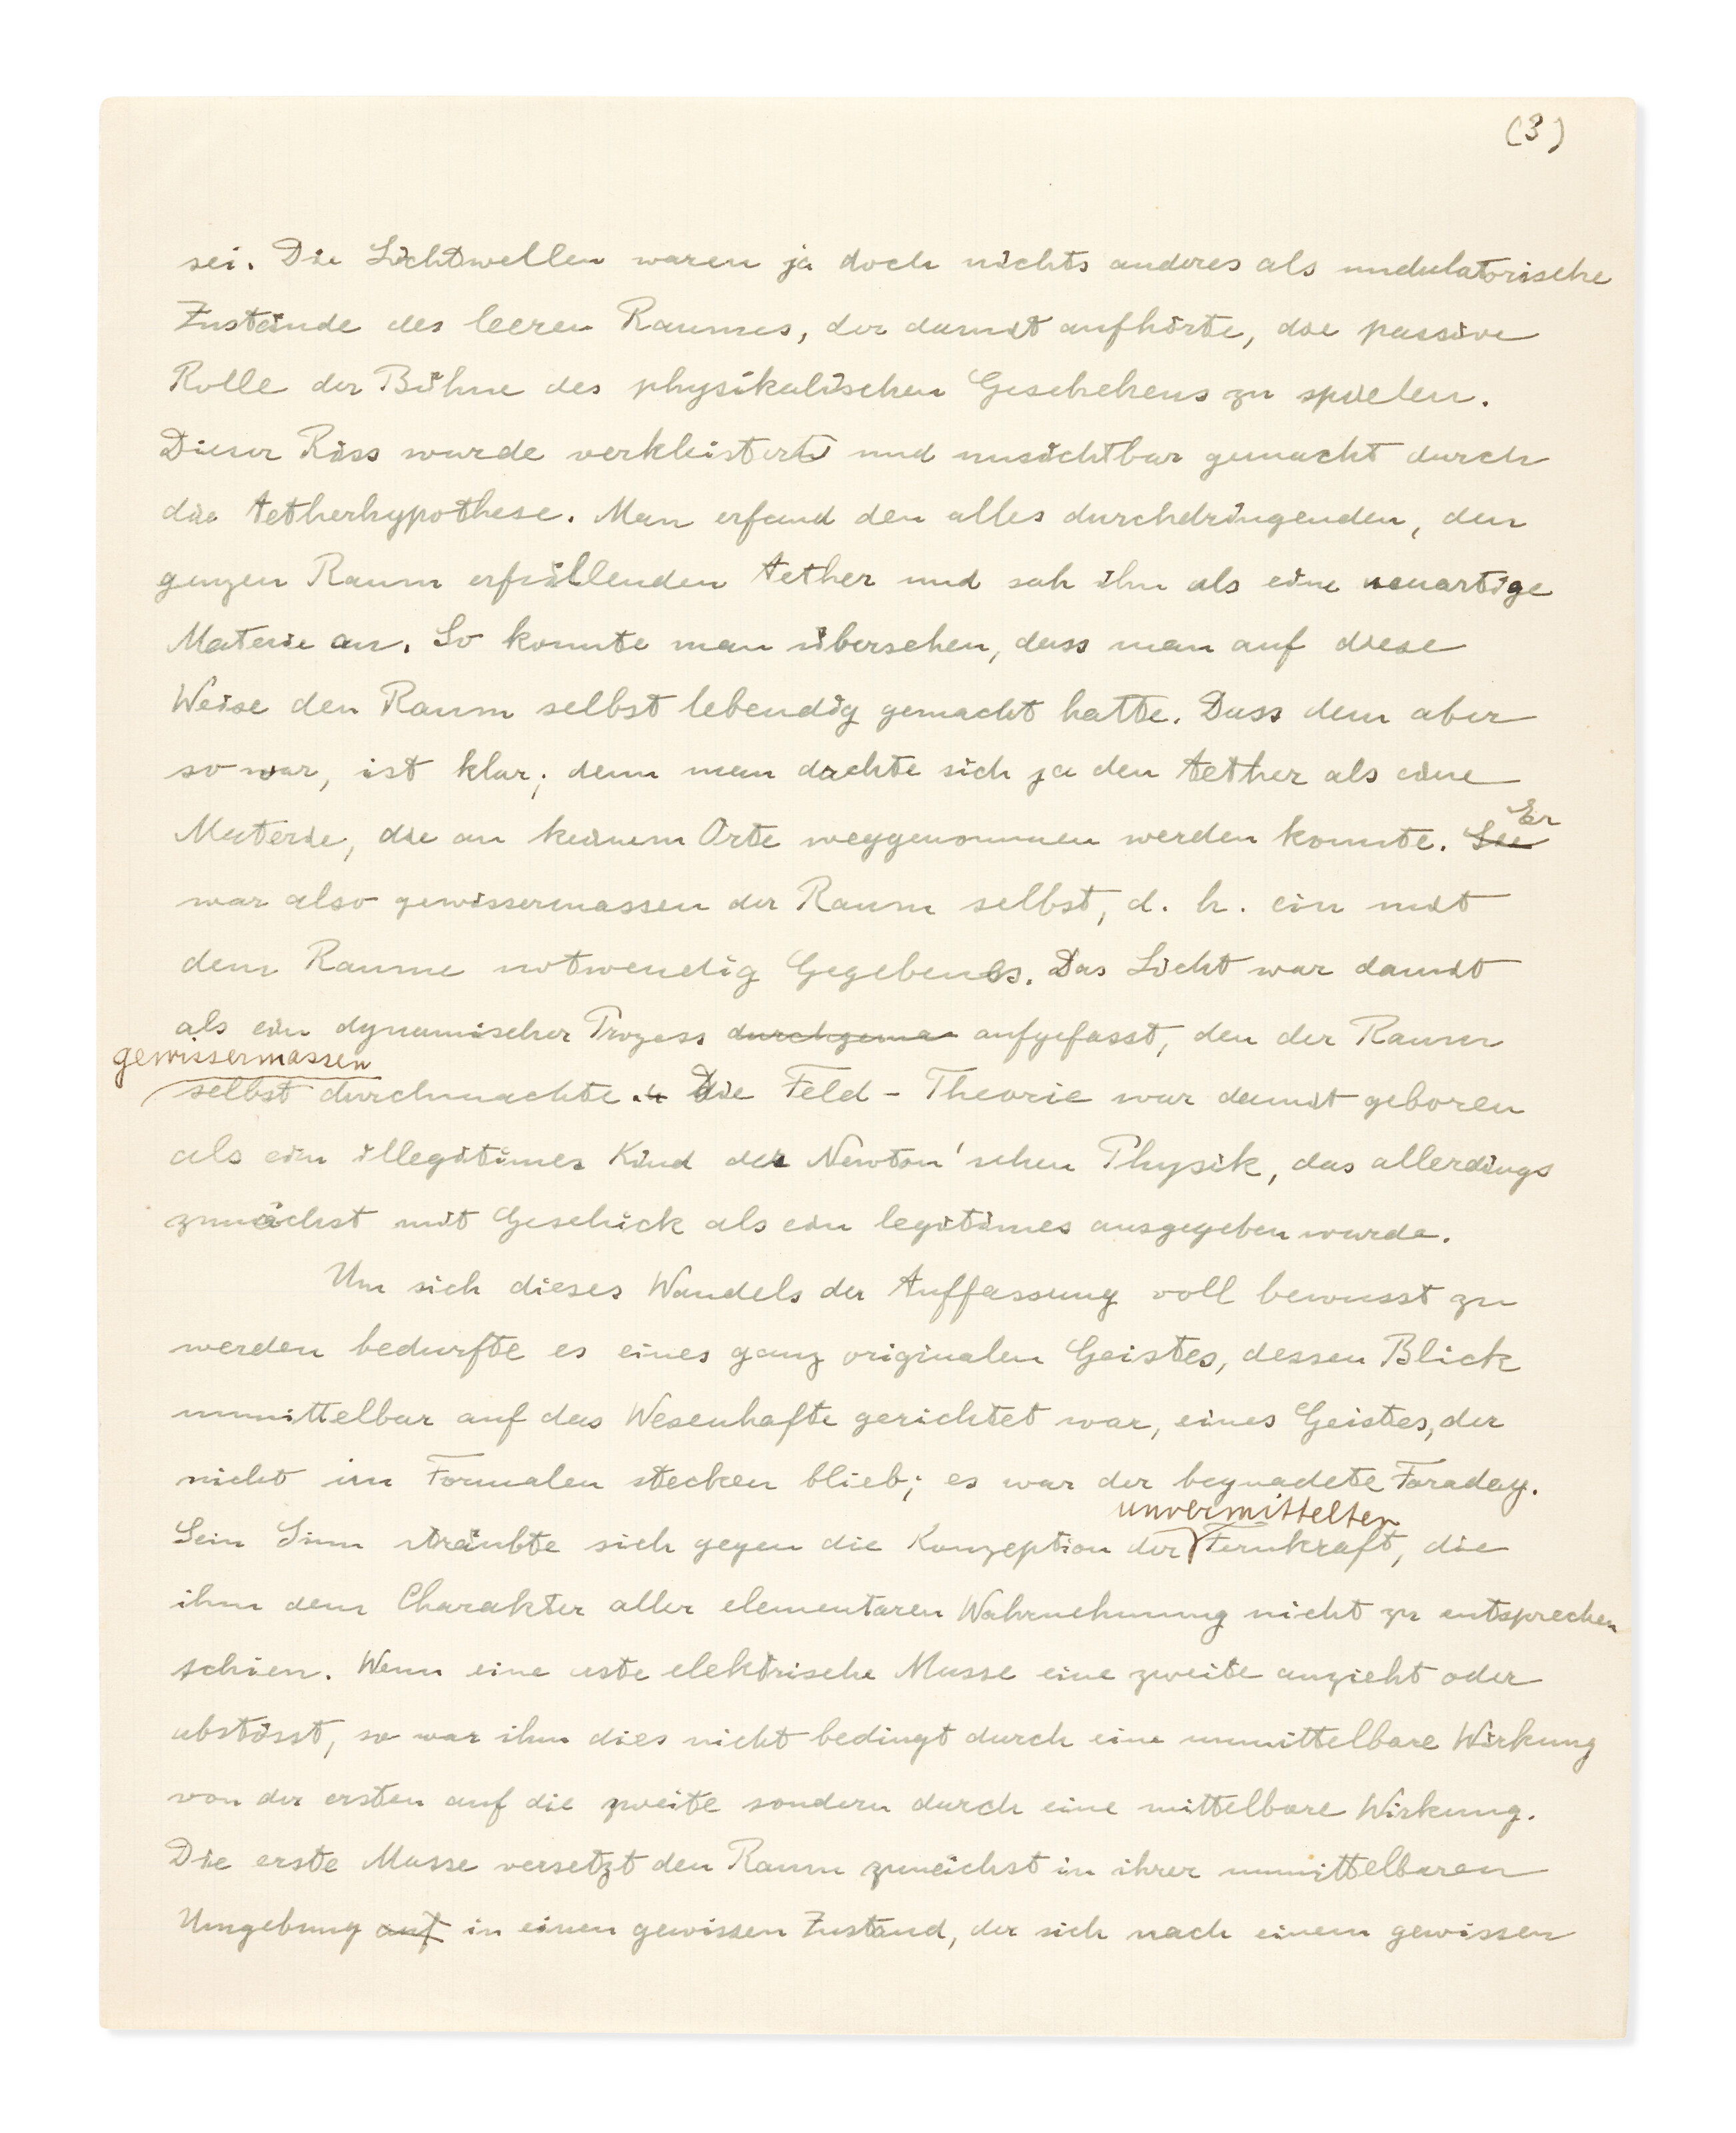 (3)
sei. Die Lichtwellen waren ja doch nichts anderes als undulatorische
Zustände des leeren Raumes, der damit aufhörte, die passive
Rolle der Bühne des physikalischen Geschehens zu spielen.
Dieser Riss wurde verkleistert und unsichtbar gemacht durch
die Aetherhypothese. Man erfand den alles durchdringenden, den
ganzen Raum erfüllenden Aether und sah ihn als eine neuartige
Materie an. So konnte man übersehen, dass man auf diese
Weise den Raum selbst lebendig gemacht hatte. Dass dem aber
so war, ist klar; denn man dachte sich ja den Aether als eine
Er
Materie, die an keinem Orte weggenommen werden konnte. Sie
war also gewissermassen der Raum selbst, d. h. ein mit
dem Raume notwendig Gegebenes. Das Licht war damit
als ein dynamischer Prozess durchgema aufgefasst, den der Raum
gewissermassen
selbst durchmachte. Die Feld-Theorie war damit geboren
als ein illegitimes Kind der Newton'schen Physik, das allerdings
zunächst mit Geschick als ein legitimes ausgegeben wurde.
Um sich dieses Wandels der Auffassung voll bewusst zu
werden bedurfte es eines ganz originalen Geistes, dessen Blick
unmittelbar auf das Wesenhafte gerichtet war, eines Geistes, der
nicht im Formalen stecken blieb; es war der begnadete Faraday.
unvermittelten
Sein Sinn sträubte sich gegen die Konzeption der Fernkraft, die
ihm dem Charakter aller elementaren Wahrnehmung nicht zu entsprechen
schien. Wenn eine erste elektrische Masse eine zweite anzieht oder
abstösst, so war ihm dies nicht bedingt durch eine unmittelbare Wirkung
von der ersten auf die zweite sondern durch eine mittelbare Wirkung.
Die erste Masse versetzt den Raum zunächst in ihrer unmittelbaren
Umgebung auf in einen gewissen Zustand, der sich nach einem gewissen